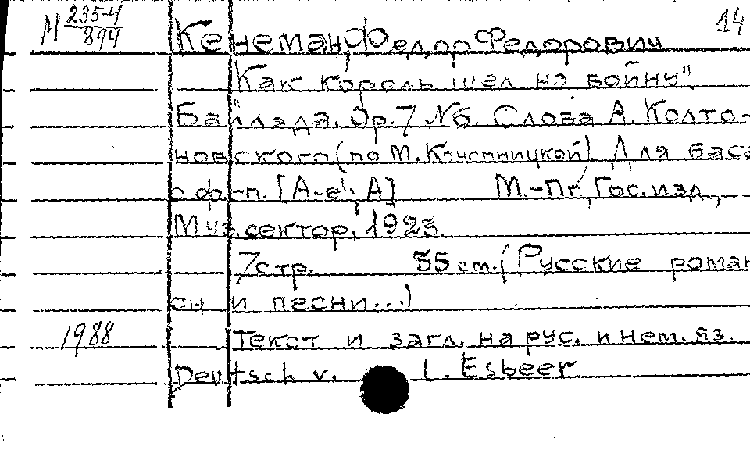 М 235-4/894
14
Кенеман, Федор Федорович
"Как король шел на войну".
Баллада. Ор. 7 №6. Слова А. Колто-
новского (по М. Конопницкой). Для баса
с ф-п. [А-е; А] М.-Пг, Гос. изд.,
Муз. сектор, 1923.
7 стр. 35 см. (Русские роман
сы и песни...)
1988
Текст и загл. на рус. и нем. яз.
Deutsch v. L. Esbeer